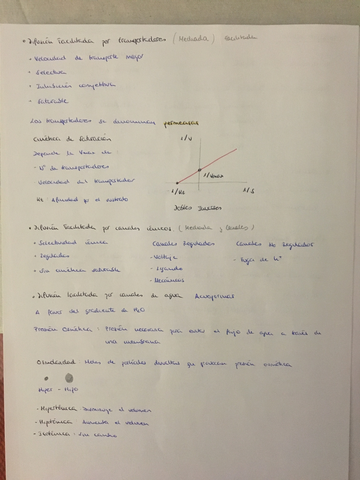 • Difusión Facilitada por transportadores (Mediada) Facilitada
• Velocidad de transporte mayor
• Selectiva
• Inhibición competitiva
• Saturable
Los transportadores se denominan permeasas
Cinética de saturación
Depende la Vmax de:
- Nº de transportadores
- Velocidad del transportador
Kt: Afinidad por el sustrato
1/V
1/Vmax
1/Kt
1/S
Dobles Inversos
• Difusión Facilitada por canales iónicos (Proteína y Canales)
• Selectividad iónica
• Regulados
• Sin cinética saturable
Canales Regulados
- Voltaje
- Ligando
- Mecánicos
Canales No Regulados
• Fuga de K⁺
• Difusión facilitada por canales de agua Acuaporinas
A favor del gradiente de H₂O
Presión Osmótica: Presión necesaria para evitar el flujo de agua a través de
una membrana
Osmolaridad Moles de partículas disueltas que producen presión osmótica
Hiper - Hipo
- Hipertónica Disminuye el volumen
- Hipotónica Aumenta el volumen
- Isotónica - Sin cambio